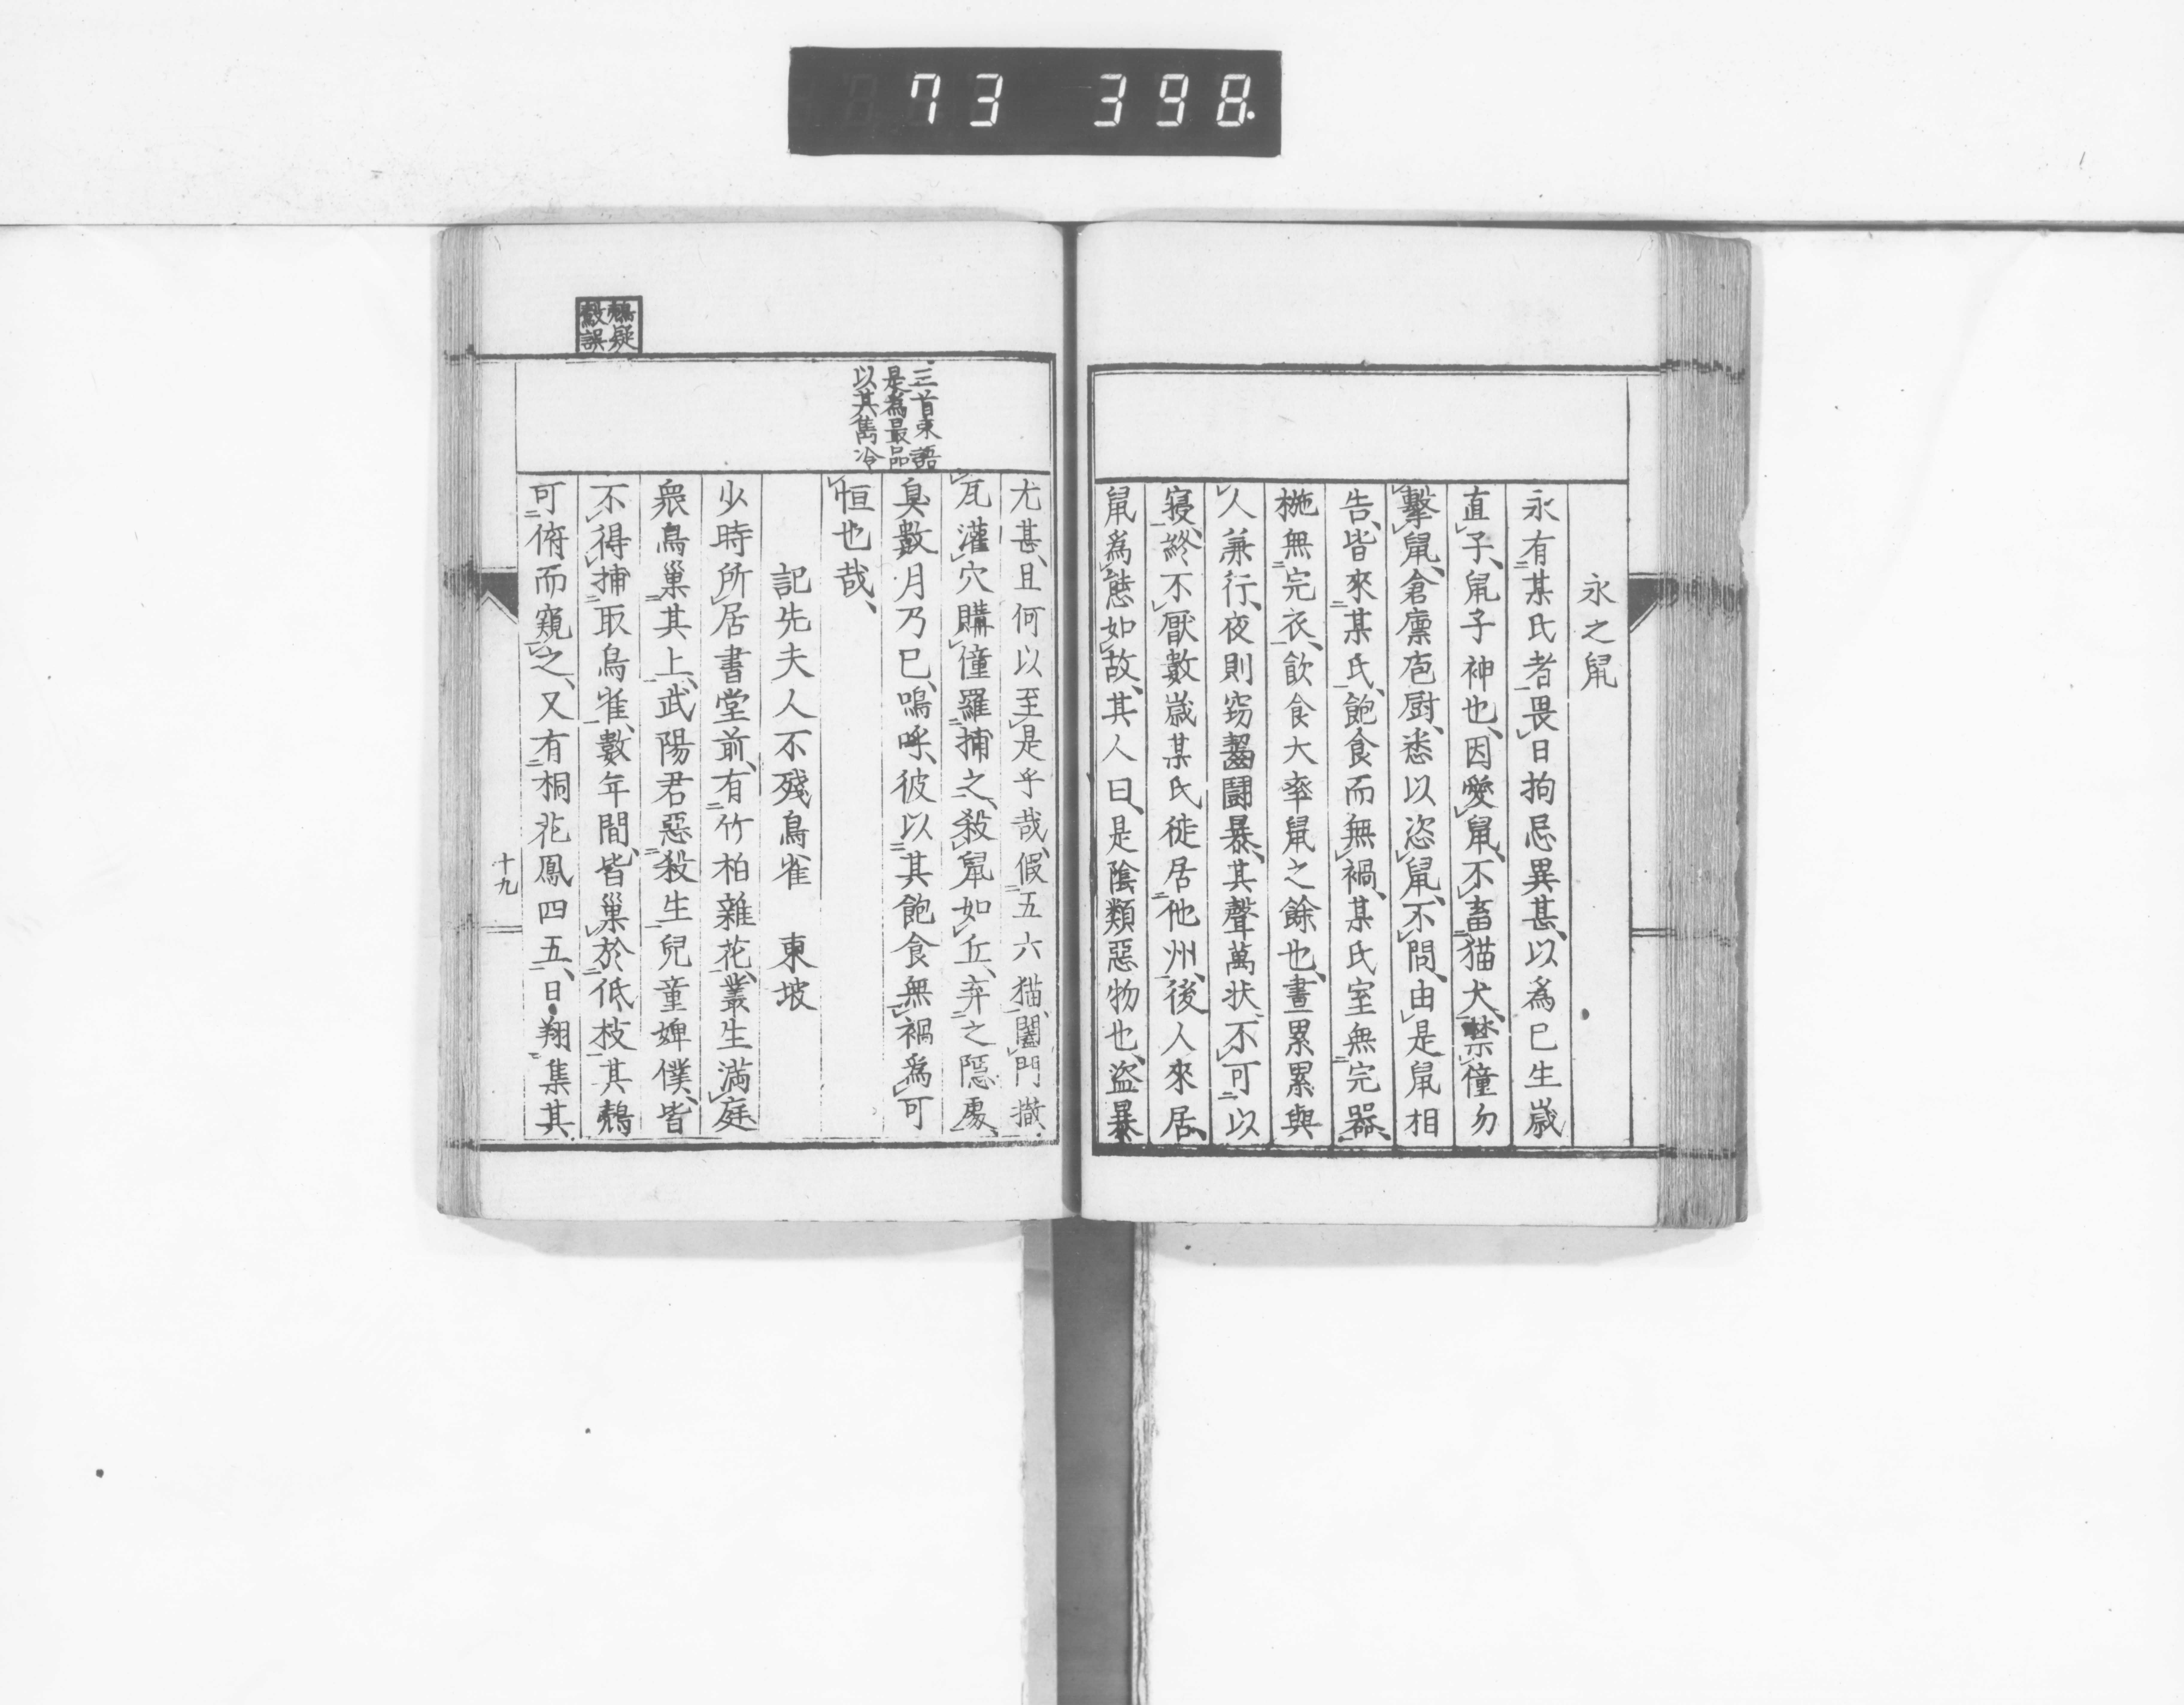 73 398
永之鼠
永有某氏者畏日拘忌異甚以爲巳生歲
直子鼠子神也因愛鼠不畜猫犬禁僮勿
擊鼠倉廩庖厨悉以恣鼠不問由是鼠相
告皆來某氏飽食而無禍某氏室無完器
椸無完衣飲食大率鼠之餘也晝累累與
人兼行夜則窃齧鬪暴其聲萬状不可以
寝終不厭數歲某氏徙居他州後人來居
鼠爲態如故其人曰是陰類惡物也盗暴
尤甚且何以至是乎哉假五六猫闔門撤
瓦灌穴購僮羅捕之殺鼠如丘弃之隱處
臭數月乃巳嗚呼彼以其飽食無禍爲可
恒也哉
三首束語
是為最品
以其雋冷
記先夫人不殘鳥雀　東坡
少時所居書堂前有竹柏雜花叢生滿庭
衆鳥巢其上武陽君惡殺生兒童婢僕皆
不得捕取鳥雀數年間皆巢於低枝其鷇
可俯而窺之又有桐花鳳四五日翔集其
疑
誤
十九